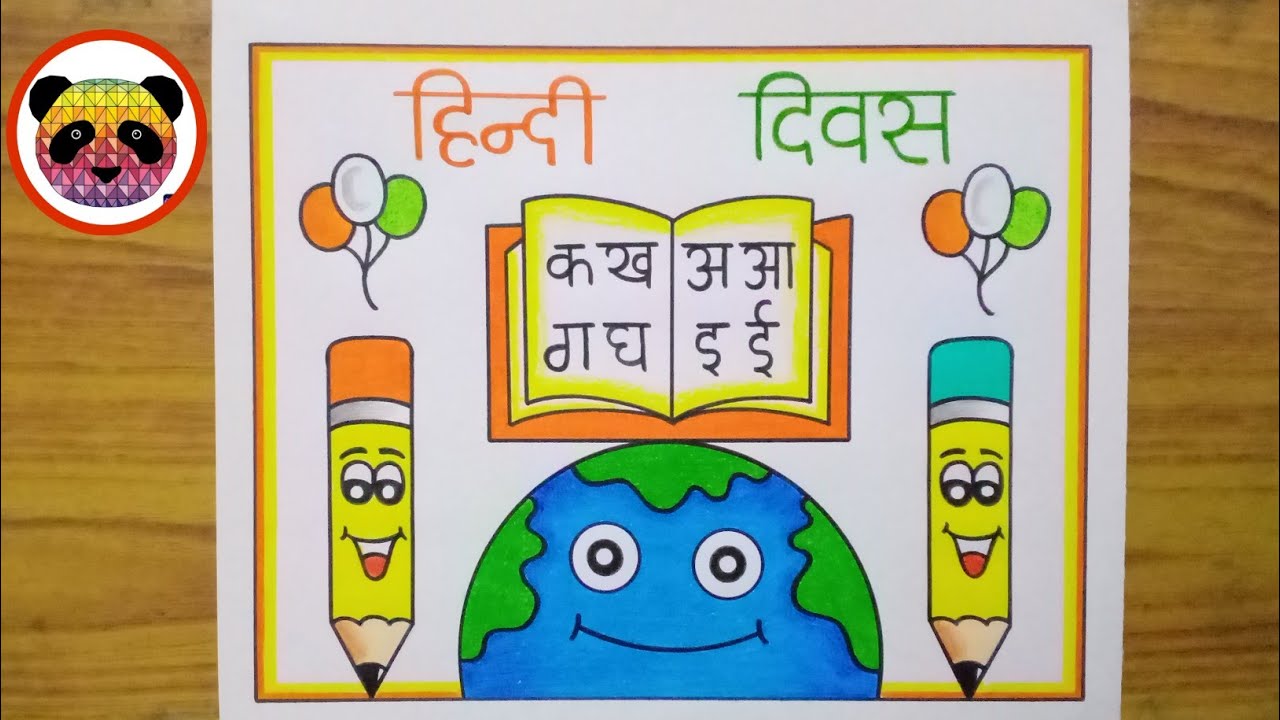 हिन्दी दिवस
क ख अ आ
ग घ इ ई